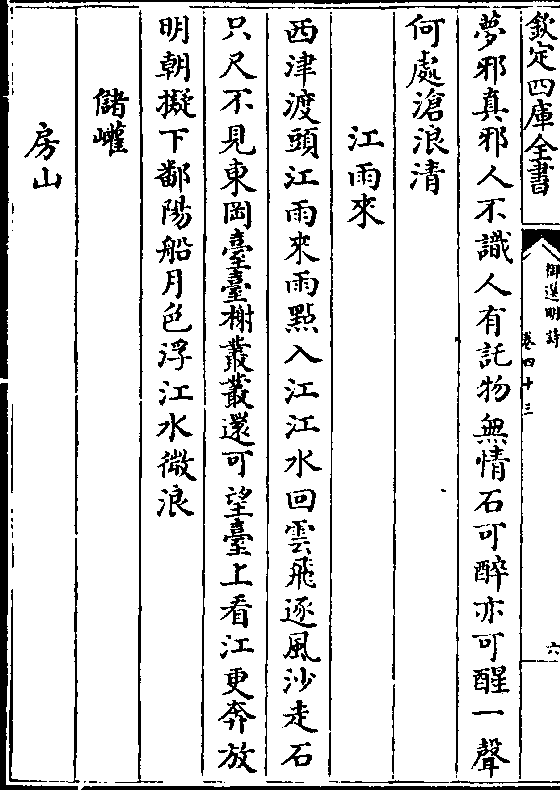 欽定四庫全書
御選明詩
卷四十三
六
夢邪真邪人不識人有託物無情石可醉亦可醒一聲
何處滄浪清
江雨來
西津渡頭江雨來雨點入江江水回雲飛逐風沙走石
只尺不見東岡臺臺榭叢叢還可望臺上看江更奔放
明朝擬下鄱陽船月色浮江水微浪
儲巏
房山